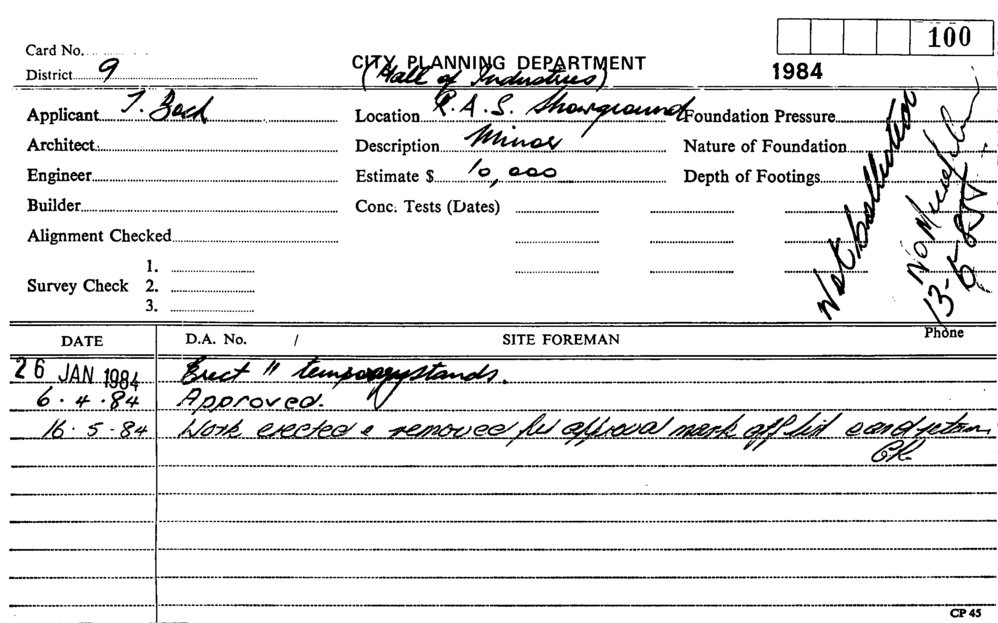 100
Card No.
CITY PLANNING DEPARTMENT
1984
District 9
(Hall of Industries)
Applicant T. Location R.A.S. Showground Foundation Pressure
Architect Description Minor Nature of Foundation
Engineer Estimate $ 10,000 Depth of Footings
Builder Conc. Tests (Dates)
Alignment Checked
1.
Survey Check 2.
3.
Not Collected
No
13-6-85
DATE D.A. No. / SITE FOREMAN Phone
26 JAN 1984 Erect 11 temporary stands.
6.4.84 Approved.
16.5.84 Work erected & removed per approval mark off list and return.
CP 45